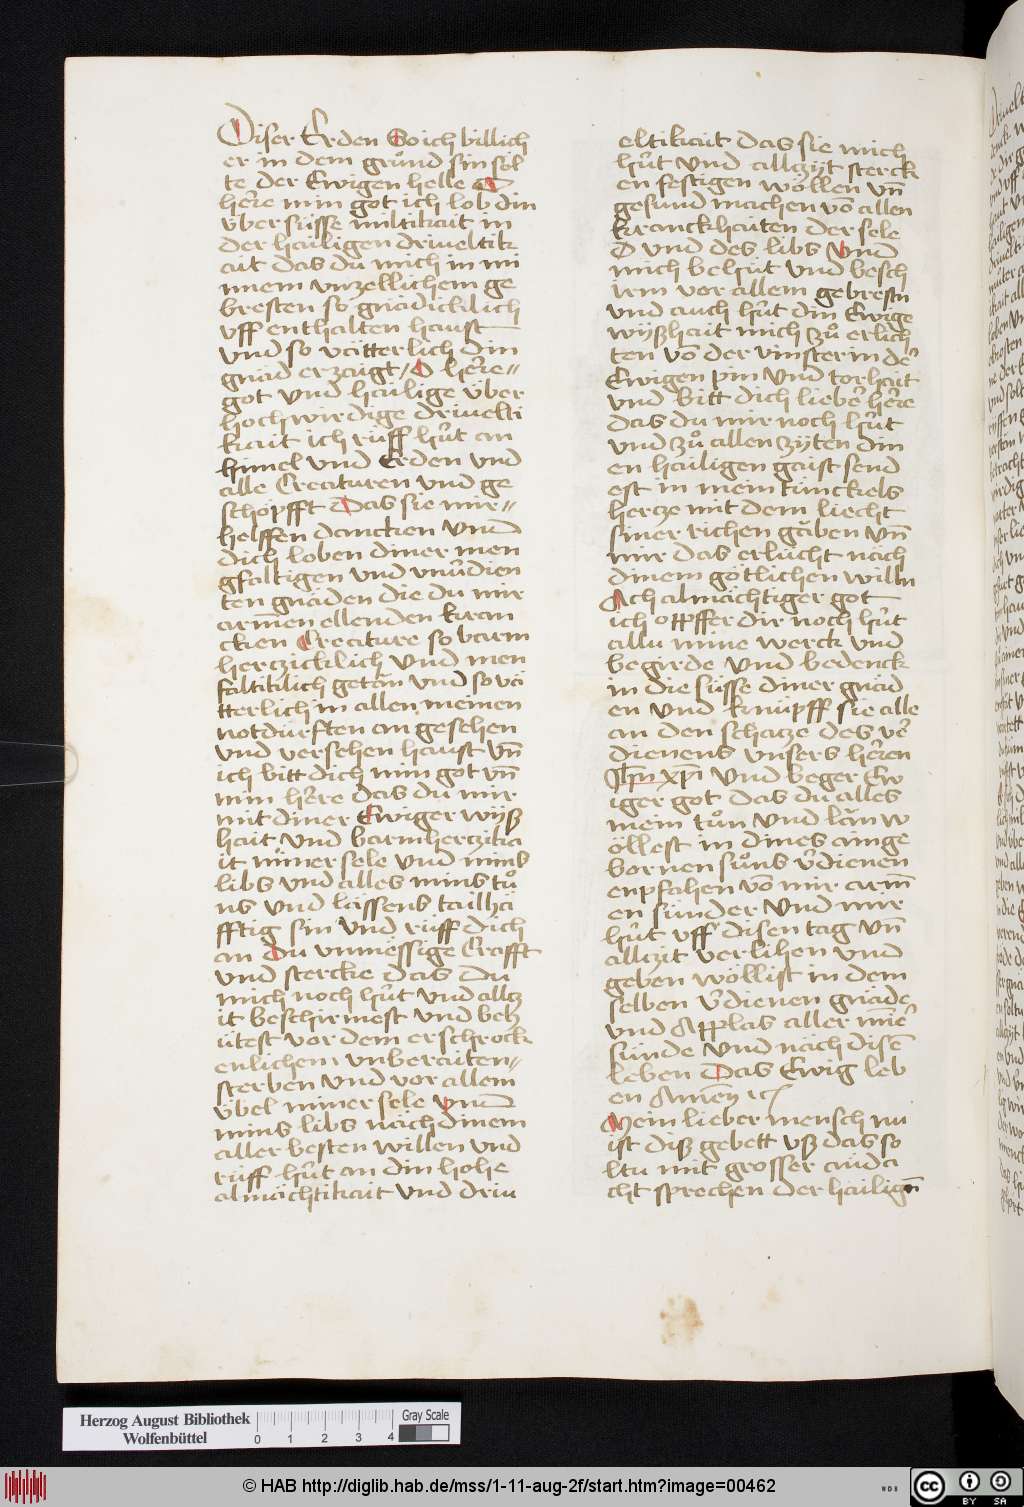 Diser Erden So ich billich
er in dem grůnd sin söl
te der Ewigen helle O
here min got ich lob din
v̈ber süsse miltikait in
der hailigen driueltik
ait das du mich in mi
nnem vnzellichem ge
bresten so gnädicklich
vff enthalten haust
vnd so vätterlich din
gnäd erzaügt / O here
got vnd hailige v̈ber
hochwirdige driuelti
kait ich rüff hüt an
himel vnd Erden vnd
alle Creaturen vnd ge
schöpfft Das sie mir
helffen dancken vnd
dich loben diner men
gfaltigen vnd vnu̇dien
ten gnäden die du mir
armen ellenden kran
cken Creature so barm
herczicklich vnd men
faltiklich getän vnd so vä
tterlich in allen meinen
notdurften an gesehen
vnd versehen haust vn̄
ich bitt dich min got vn̄
min here das du mir
mit diner Ewiger wÿß
hait vnd barmherczika
it miner sele vnd mins
libs vnd alles mins tů
ns vnd lässens tailhä
fftig sin vnd rüff dich
an Du vnmessige Crafft
vnd stercke das Du
mich noch hüt vnd allcz
it beschirmest vnd beh
ütest vor dem erschrock
enlichem vnberaiten
sterben vnd vor allem
v̈bel miner sele vnd
mins libs näch dinem
aller besten willen vnd
rüff hüt an din hohe
almächtikait vnd driu
eltikait das sie mich
hüt vnd allczÿt sterck
en festigen wöllen vn̄
gesund machen vō allen
kranckhaiten der sele
O vnd des libs Vnd
mich behüt vnd besch
irm vor allem gebresten
vnd auch hüt din Ewige
wÿßhait mich zů erlich
ten vō der vinster in de'
Ewigen pin vnd torhait
vnd bitt dich lieber here
das du mir noch hüt
vnd zů allen zÿten din
en hailigen gaist send
est in mein tünckels
hercze mit dem liecht
siner richen gäben vn̄
mir das erlücht näch
dinem götlichen willn
Ach almächtiger got
ich opffer dir noch hüt
allu mine werck vnd
begirde vnd bedenck
in die süsse diner gnäd
en vnd knüpff sie alle
an den schacze des ve'
dienens vnsers heren
Jhū xp̄i vnd beger Ew
iger got das du alles
mein tůn vnd län w
öllest in dines ainge
bornen sůns v'dienen
enpfahen vō mir arm̄
en sünder vnd mir
hüt vff disen tag vn̄
allczit verlihen vnd
geben wöllist in dem
selben v'dienen gnäde
vnd Applas aller mine'
sünde vnd näch disē
leben Das Ewig leb
en Amen ꝛc
Mein lieber mensch nu
ist diß gebett vß das so
ltu mit grosser andä
cht sprechen der hailigen̄
Herzog August Bibliothek
Wolfenbüttel
0 1 2 3 4
Gray Scale
© HAB http://diglib.hab.de/mss/1-11-aug-2f/start.htm?image=00462
WDB
cc BY SA